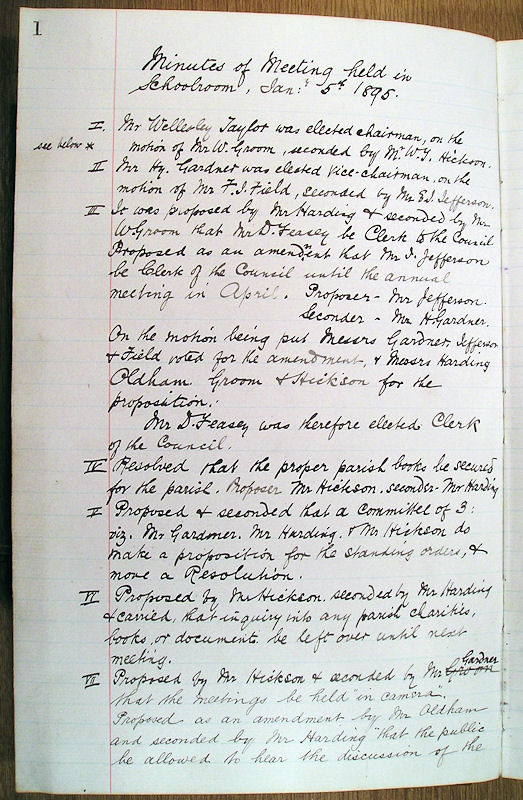 1
Minutes of Meeting held in
Schoolroom, Jan: 5th 1895.
I. Mr Wellesley Taylor was elected chairman, on the
see below * motion of Mr W. Groom, seconded by Mr W.J. Hickson.
II Mr Hy. Gardner was elected vice-chairman, on the
motion of Mr F.J. Field, seconded by Mr E.J. Jefferson.
III It was proposed by Mr Harding & seconded by Mr
W Groom that Mr D. Feasey be Clerk to the Council
Proposed as an amendment that Mr J. Jefferson
be Clerk of the Council until the annual
meeting in April. Proposer - Mr Jefferson.
Seconder - Mr H Gardner.
On the motion being put Messrs Gardner, Jefferson
& Field voted for the amendment, & Messrs Harding
Oldham. Groom & Hickson for the
proposition.
Mr D. Feasey was therefore elected Clerk
of the Council.
IV Resolved that the proper parish books be secured
for the parish. Proposer Mr Hickson. seconder - Mr Harding
V Proposed & seconded that a Committee of 3:
viz. Mr Gardner. Mr Harding. & Mr Hickson do
make a proposition for the standing orders, &
move a Resolution.
VI Proposed by Mr Hickson, seconded by Mr Harding
& carried, that inquiry into any parish charities,
books, or documents be left over until next
meeting.
VII Proposed by Mr Hickson & seconded by Mr Groom Gardner
that the meetings be held "in camera".
Proposed as an amendment by Mr Oldham
and seconded by Mr Harding "that the public
be allowed to hear the discussion of the